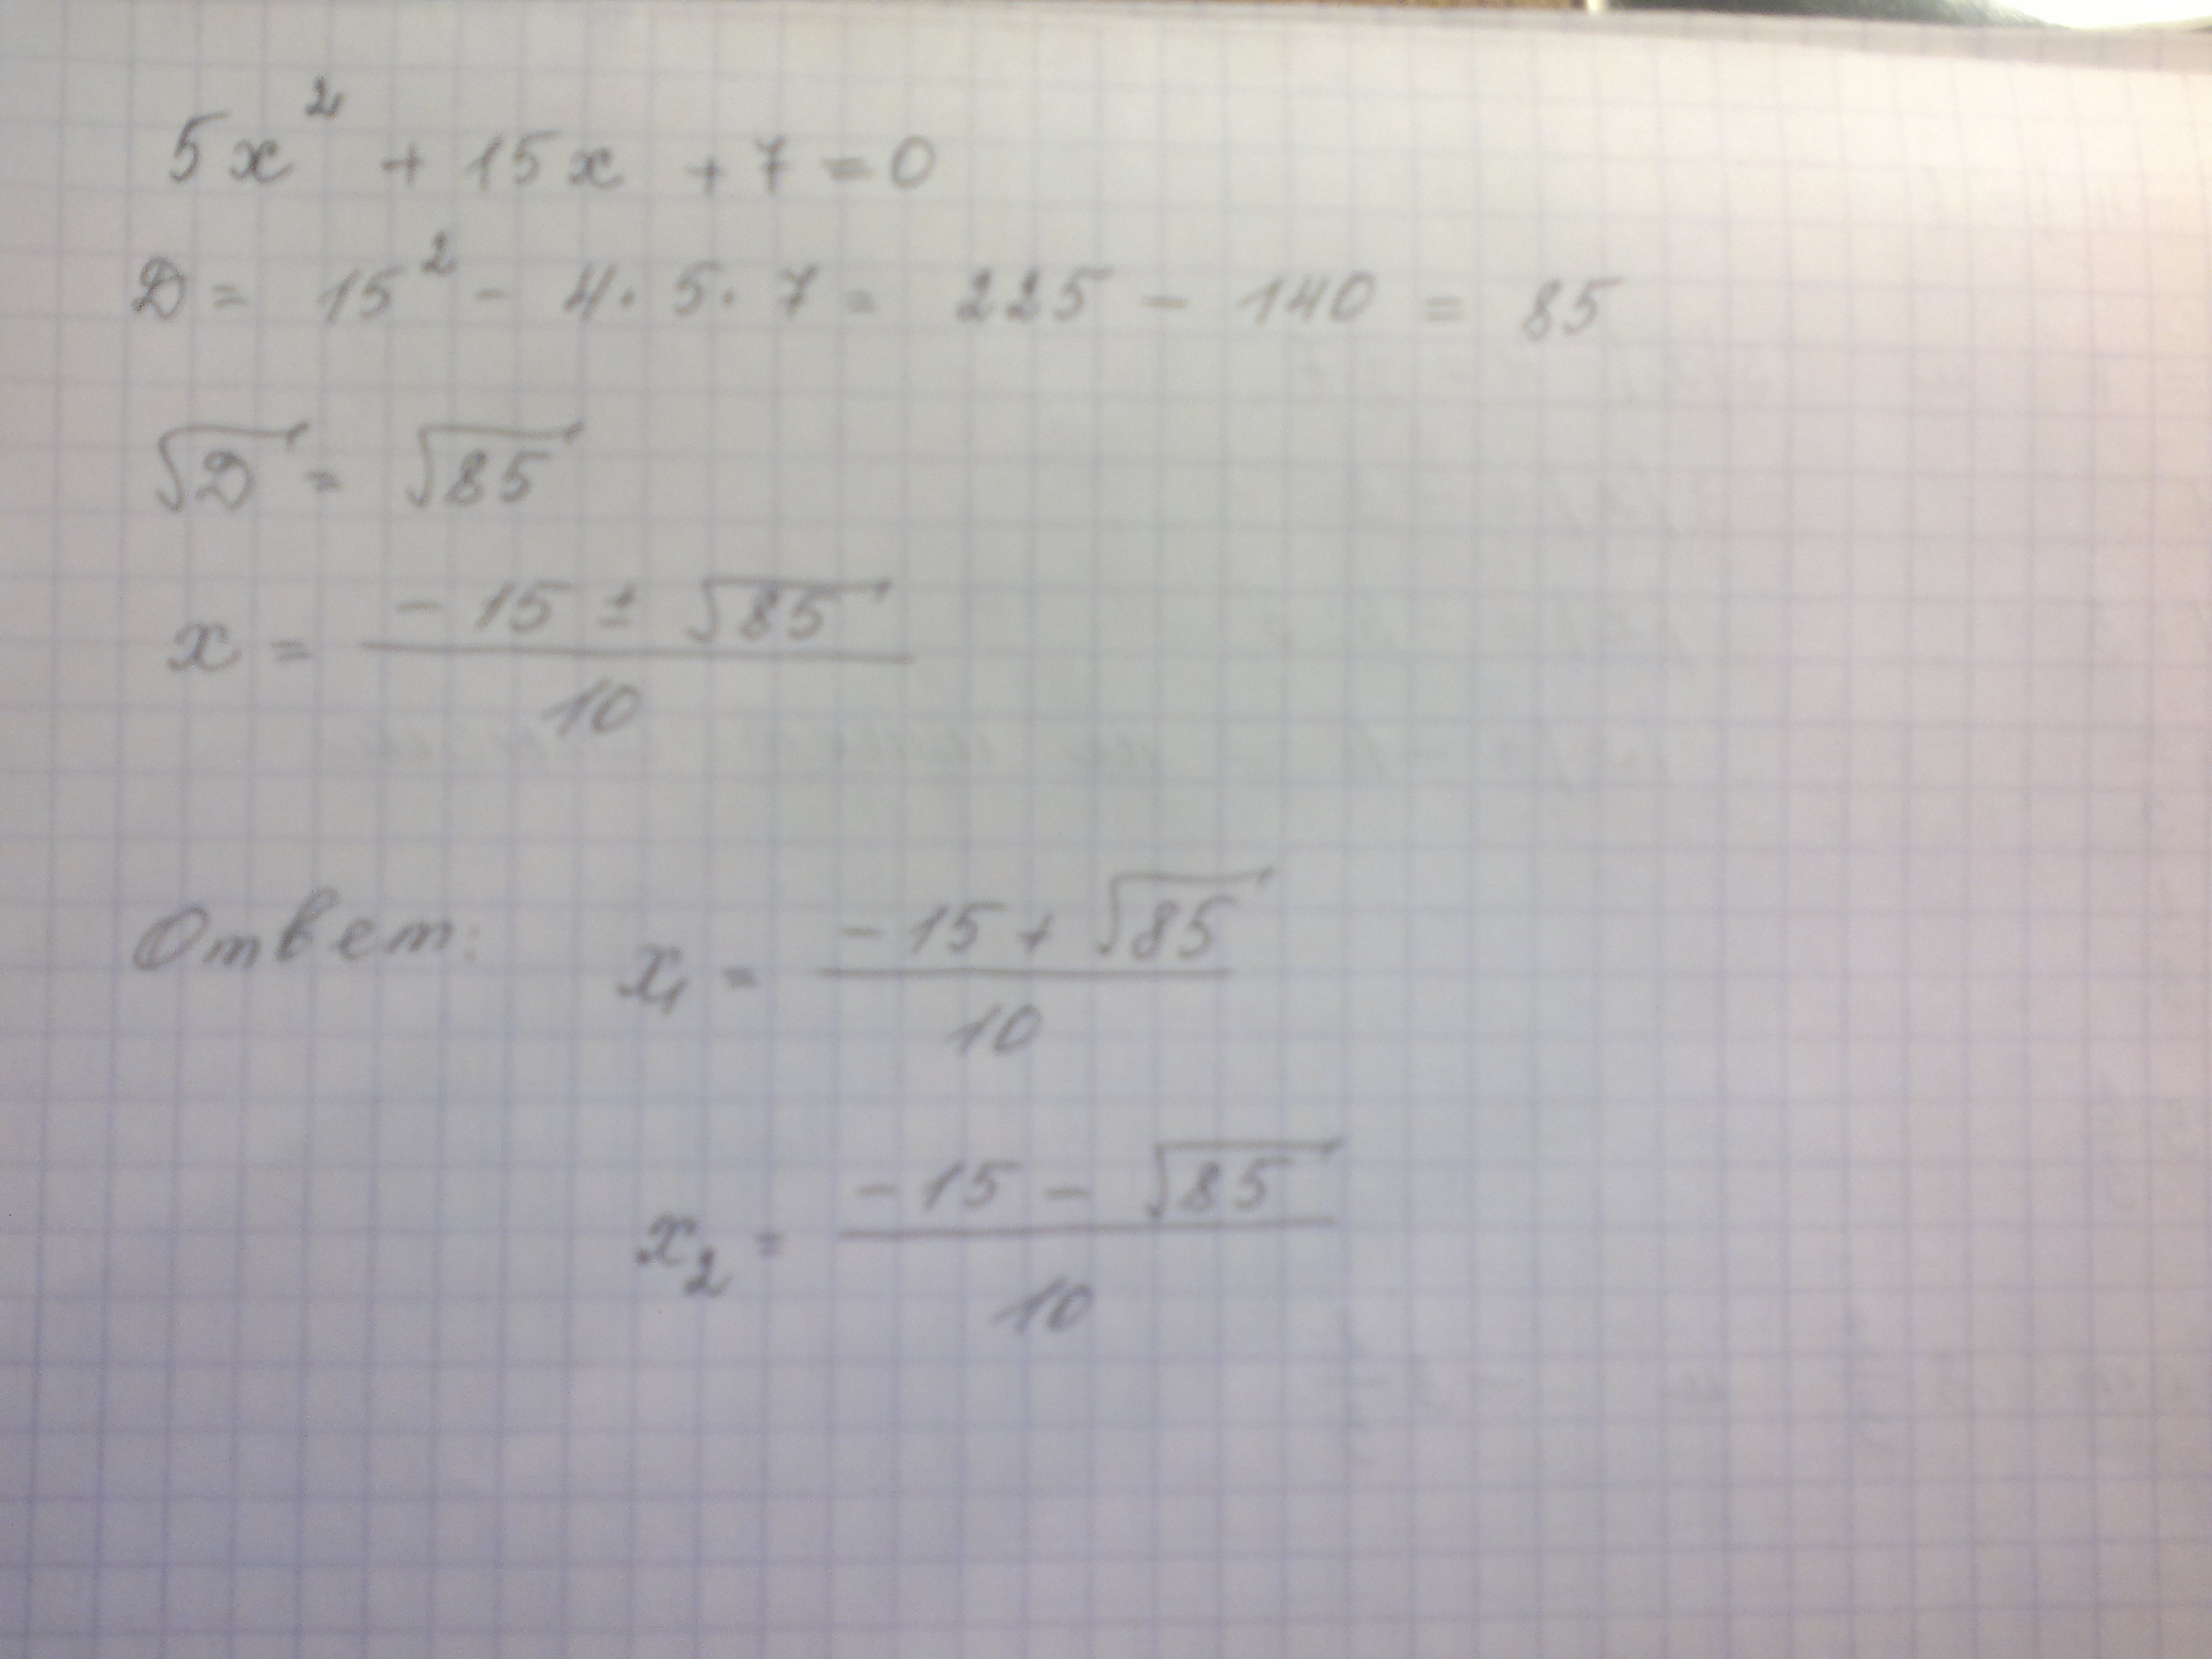 5x² + 15x + 7 = 0
D = 15² - 4 · 5 · 7 = 225 - 140 = 85
√D = √85
x = (-15 ± √85) / 10
Ответ: x₁ = (-15 + √85) / 10
x₂ = (-15 - √85) / 10